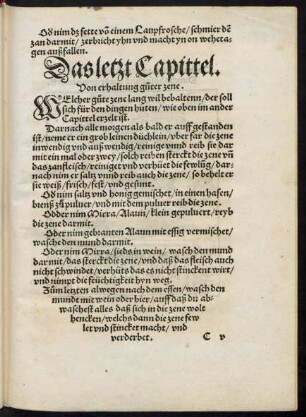 Oð nim dz fette võ einem Laupfrosche/ schmier dẽ
zan darmit/ zerbricht yhn vnd macht yn on wehetag
en außfallen.
Das letzt Capittel.
Von erhaltung gůter zene.
WElcher gůte zene lang wil behaltenn/ der soll
sich für den dingen hüten/ wie oben im ander
Capittel erzelt ist.
Darnach alle morgen als bald er auff gestanden
ist/ neme er ein grob leinen düchlein/ vber far die zene
inwendig vnd außwendig/ reinige vnnd reib sie dar
mit ein mal oder zwey/ solch reiben sterckt die zene vñ
das zanfleisch/ reiniget vnd verhüt die fewlung/ dar-
nach nim er saltz vnnd reib auch die zene/ so behelt er
sie weiß/ frisch/ fest/ vnd gesunt.
Oð nim saltz vnd honig gemischet/ in einen hafen/
brenß zů puluer/ vnd mit dem puluer reib die zene.
Odder nim Mirra/ Alaun/ klein gepuluert/ reyb
die zene darmit.
Oder nim gebranten Alaun mit essig vermischet/
wasche den mund darmit.
Oder nim Mirra/ sieds in wein/ wasch den mund
darmit/ das sterckt die zene/ vnd daß das fleisch auch
nicht schwindet/ verhüts das es nicht stinckent wirt/
vnd nimpt die feuchtigkeit hyn weg.
Zům letzten alwegen nach dem essen/ wasch den
mundt mit wein oder bier/ auff daß du ab-
waschest alles daß sich in die zene wolt
hencken/ welchs dann die zene few
let vnd stincket macht/ vnd
verderbet.
C v